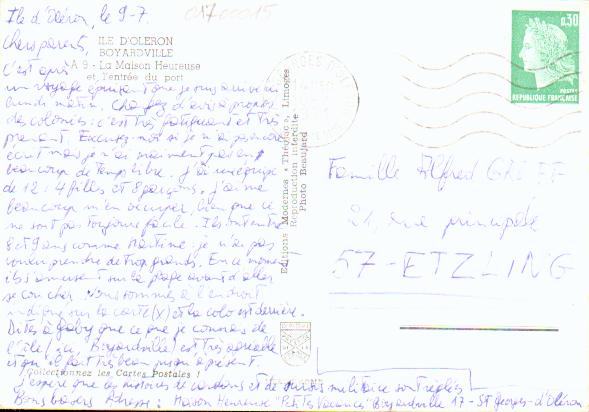 Ile d'Oléron, le 9-7.
01700015
Chers parents,
ILE D'OLERON
BOYARDVILLE
A 9 - La Maison Heureuse
et l'entrée du port
C'est après
un voyage épuisant que je suis arrivé
lundi matin. d'avis à propos
des colonies : c'est très fatigant et très
prenant. Excusez-moi si je n'ai pas encore
écrit mais je n'ai vraiment pas eu
beaucoup de temps libre. J'ai une équipe
de 12 : 4 filles et 8 garçons. J'aime
beaucoup m'en occuper, bien que ce
ne soit pas toujours facile. Ils ont entre
8 et 9 ans comme Martine : je n'ai pas
voulu prendre de trop grands. En ce moment
ils s'amusent sur la plage avant d'aller
se coucher. Nous sommes à l'endroit
indiqué sur la carte (x) et la colo est derrière.
Dites à Gaby que ce que je connais de
l'île (ou Boyardville) est très agréable
et qu'il fait très beau jusqu'à présent.
Collectionnez les Cartes Postales !
J'espère que les histoires de et de sursis militaire sont réglées
Bons baisers Adresse : Maison Heureuse "Petites Vacances" Boyardville 17 - St Georges-d'Oléron
Editions Modernes « Théojac », Limoges
Reproduction interdite
Photo Beaujard
0,30
POSTES
REPUBLIQUE FRANÇAISE
Famille Alfred
21, rue principale
57-ETZLING